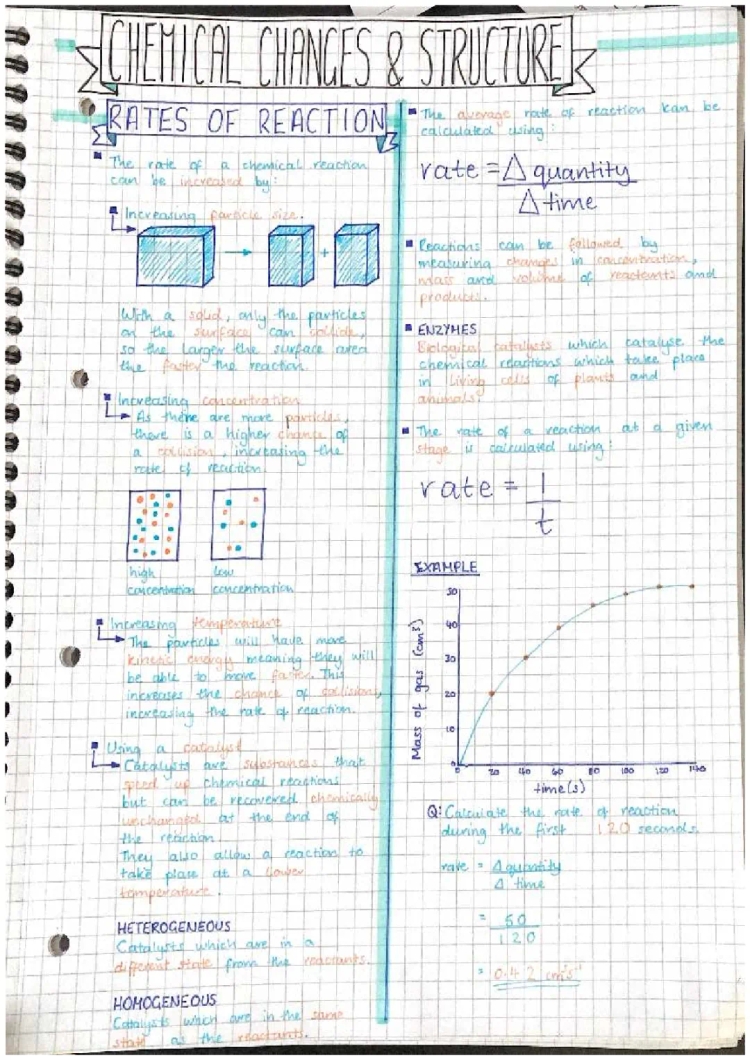 CHEMICAL CHANGES & STRUCTURE
RATES OF REACTION
The rate of a chemical reaction
can be increased by:
Increasing particle size.
+
With a solid, only the particles
on the surface can collide,
so the larger the surface area
the faster the reaction.
Increasing concentration
As there are more particles,
there is a higher chance of
a collision, increasing the
rate of reaction.
high
concentration
low
concentration
Increasing temperature
The particles will have more
kinetic energy meaning they will
be able to move faster. This
increases the chance of collision,
increasing the rate of reaction.
Using a catalyst
Catalysts are substances that
speed up chemical reactions
but can be recovered chemically
unchanged at the end of
the reaction.
They also allow a reaction to
take place at a lower
temperature.
HETEROGENEOUS
Catalysts which are in a
different state from the reactants.
HOMOGENEOUS
Catalysts which are in the same
state as the reactants.
The average rate of reaction can be
calculated using:
rate = Δ quantity
Δ time
Reactions can be followed by
measuring changes in concentration,
mass and volume of reactants and
products.
ENZYMES
Biological catalysts which catalyse the
chemical reactions which take place
in living cells of plants and
animals.
The rate of a reaction at a given
stage is calculated using:
rate = 1
t
EXAMPLE
Mass of gas (cm³)
50
40
30
20
10
0
20 40 60 80 100 120 140
time (s)
Q: Calculate the rate of reaction
during the first 120 seconds.
rate = Δ quantity
Δ time
= 50
120
= 0.42 cm³s⁻¹